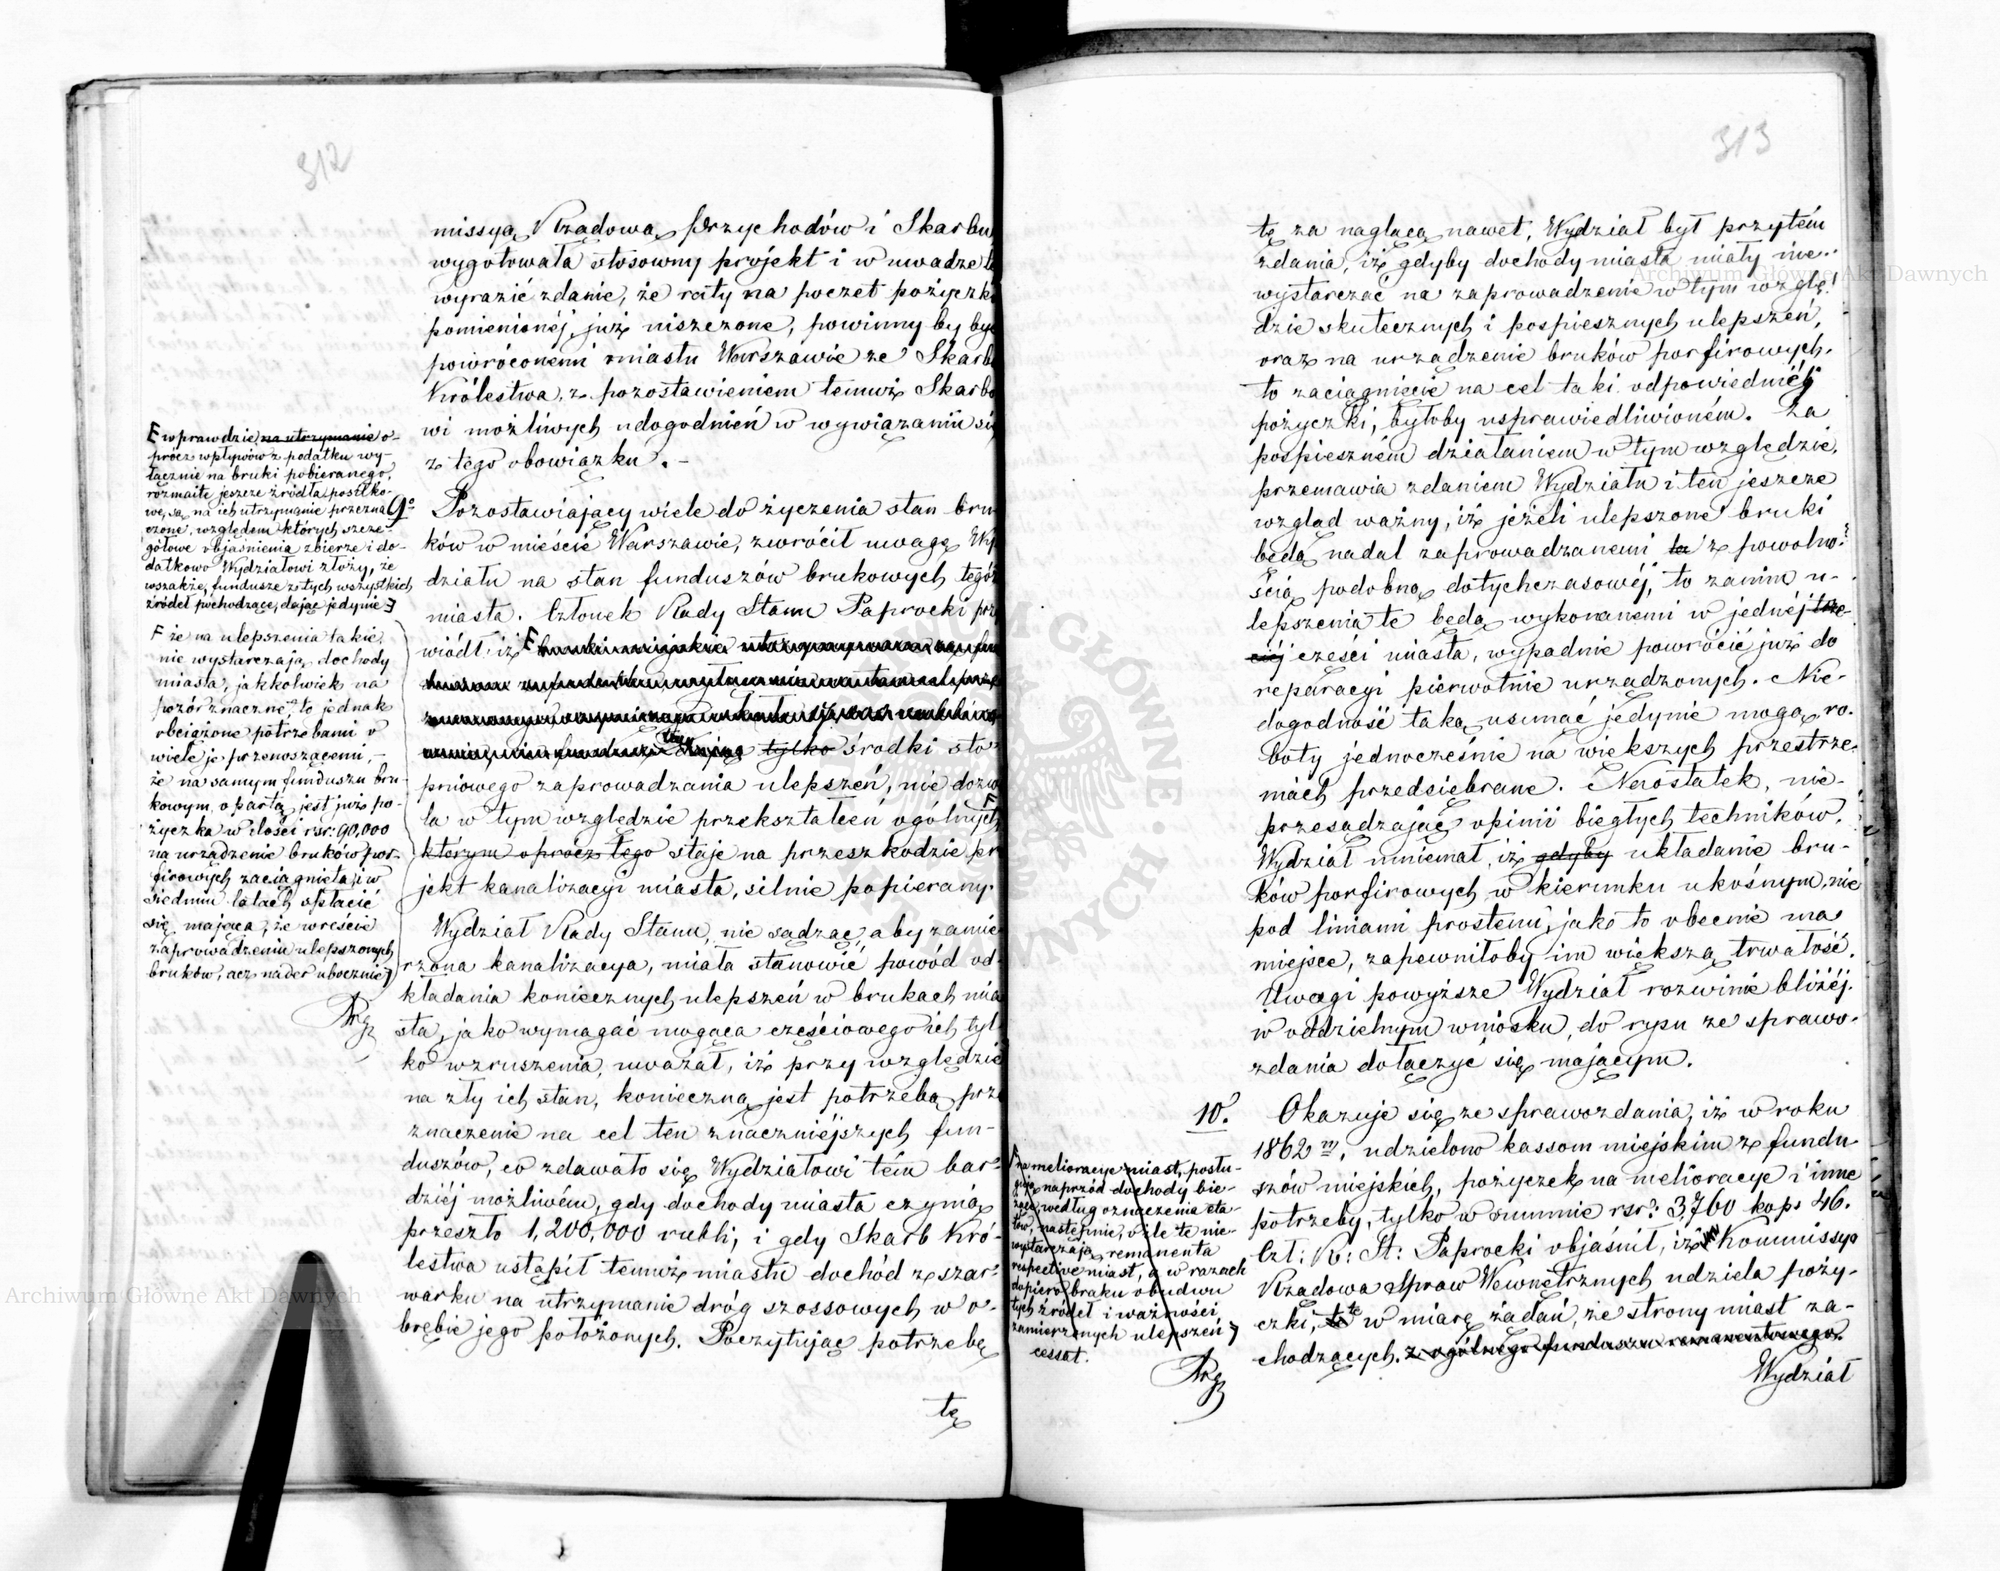 312
missya Rządowa Przychodów i Skarbu
wygotowała stosowny projekt i w uwadze
wyrazić zdanie, że raty na poczet pożyczki
pomienionéj już niszczone, powinny by być
powróconemi miastu Warszawie ze Skarbu
Królestwa, z pozostawieniem temuż Skarbo
wi możliwych udogodnień w wywiązaniu się
z tego obowiązku. –
9o
Pozostawiający wiele do życzenia stan bru
ków w mieście Warszawie, zwrócił uwagę Wy
działu na stan funduszów brukowych tegóż
miasta. Członek Rady Stanu Paprocki prz
wiódł iż
tylko środki sto
pniowego zaprowadzania ulepszeń, nie dozwa
la w tym względzie przekształceń ogólnych
którym oprócz tego staje na przeszkodzie pro
jekt kanalizacyi miasta, silnie popierany.
Wydział Rady Stanu, nie sądząc aby zamie
rzona kanalizacya, miała stanowić powód od-
kładania koniecznych ulepszeń w brukach mia
sta, jako wymagać mogąca częściowego ich tyl
ko wzruszenia, uważał, iż przy względzie
na zły ich stan, konieczną jest potrzebą prze
znaczenie na cel ten znaczniejszych fun-
duszów, co zdawało się Wydziałowi tém bar-
dziéj możliwém, gdy dochody miasta czynią
przeszło 1,200,000 rubli, i gdy Skarb Kró-
lestwa ustąpił temuż miastu dochód z szar-
warku na utrzymanie dróg szossowych w o-
brębie jego położonych. Poczytując potrzebę
tę
wprawdzie na utrzymanie o-
prócz wpływów z podatku wy-
łącznie na bruki pobieranego,
rozmaite jeszcze źródła posiłko-
we, są na ich utrzymanie przezna
czone, względem których szcze-
gółowe objaśnienia zbierze i do-
datkowo Wydziałowi złoży, że
wszakże, fundusze z tych wszystkich
źródeł pochodzące, dając jedynie
że na ulepszenia takie
nie wystarczają dochody
miasta, jakkolwiek na
pozór znaczne, te jednak
obciążone potrzebami o
wiele je przenoszącemi, –
że na samym funduszu bru-
kowym, opartą jest już po-
życzka w ilości rsr: 90,000
na urządzenie bruków por-
firowych zaciągnięta, i w
siedmiu latach opłacić
się mająca, że wreście
zaprowadzeniu ulepszonych
bruków, acz nader ubocznie
313
tę za naglącą nawet, Wydział był przytém
zdania, iż gdyby dochody miasta miały nie-
wystarczać na zaprowadzenie w tym wzglę-
dzie skutecznych i pospiesznych ulepszeń,
oraz na urządzenie bruków porfirowych,
to zaciągnięcie na cel taki odpowiednéj
pożyczki, byłoby usprawiedliwioném. Za
pospieszném działaniem w tym względzie,
przemawia zdaniem Wydziału i ten jeszcze
wzgląd ważny, iż jeżeli ulepszone bruki
będą nadal zaprowadzanemi ta z powolno-
ścią podobną dotychczasowéj, to zanim u-
lepszenia te będą wykonanemi w jednéj trze-
ciéj części miasta, wypadnie powrócić już do
reparacyi pierwotnie urządzonych. Nie-
dogodność taką usunąć jedynie mogą ro-
boty jednocześnie na większych przestrze-
niach przedsiębrane. Naostatek, nie-
przesądzając opinii biegłych techników,
Wydział mniemał, iż gdyby układanie bru-
ków porfirowych w kierunku ukośnym, nie
pod liniami prostemi, jako to obecnie ma
miejsce, zapewniłoby im większą trwałość.
Uwagi powyższe Wydział rozwinie bliżéj
w oddzielnym wniosku, do rysu ze sprawo-
zdania dołączyć się mającym.
10.
Okazuje się ze sprawozdania, iż w roku
1862m, udzielono kassom miejskim z fundu-
szów miejskich, pożyczek na melioracye i inne
potrzeby, tylko w summie rsr: 3,760 kop: 46.
Czł: R: St: Paprocki objaśnił, iż Kommissya
Rządowa Spraw Wewnętrznych udziela poży-
czki, te w miarę żądań, ze strony miast za-
chodzących. z ogólnego funduszu remanentowego.
Wydział
na melioracye miast, posłu-
gują naprzód dochody bie-
żące, według oznaczenia eta-
tów, następnie, o ile te nie-
wystarczają remanenta
respective miast, a w razach
dopiero braku obudwu
tych źródeł i ważności
zamierzonych ulepszeń
cessat.
Archiwum Główne Akt Dawnych
Archiwum Główne Akt Dawnych